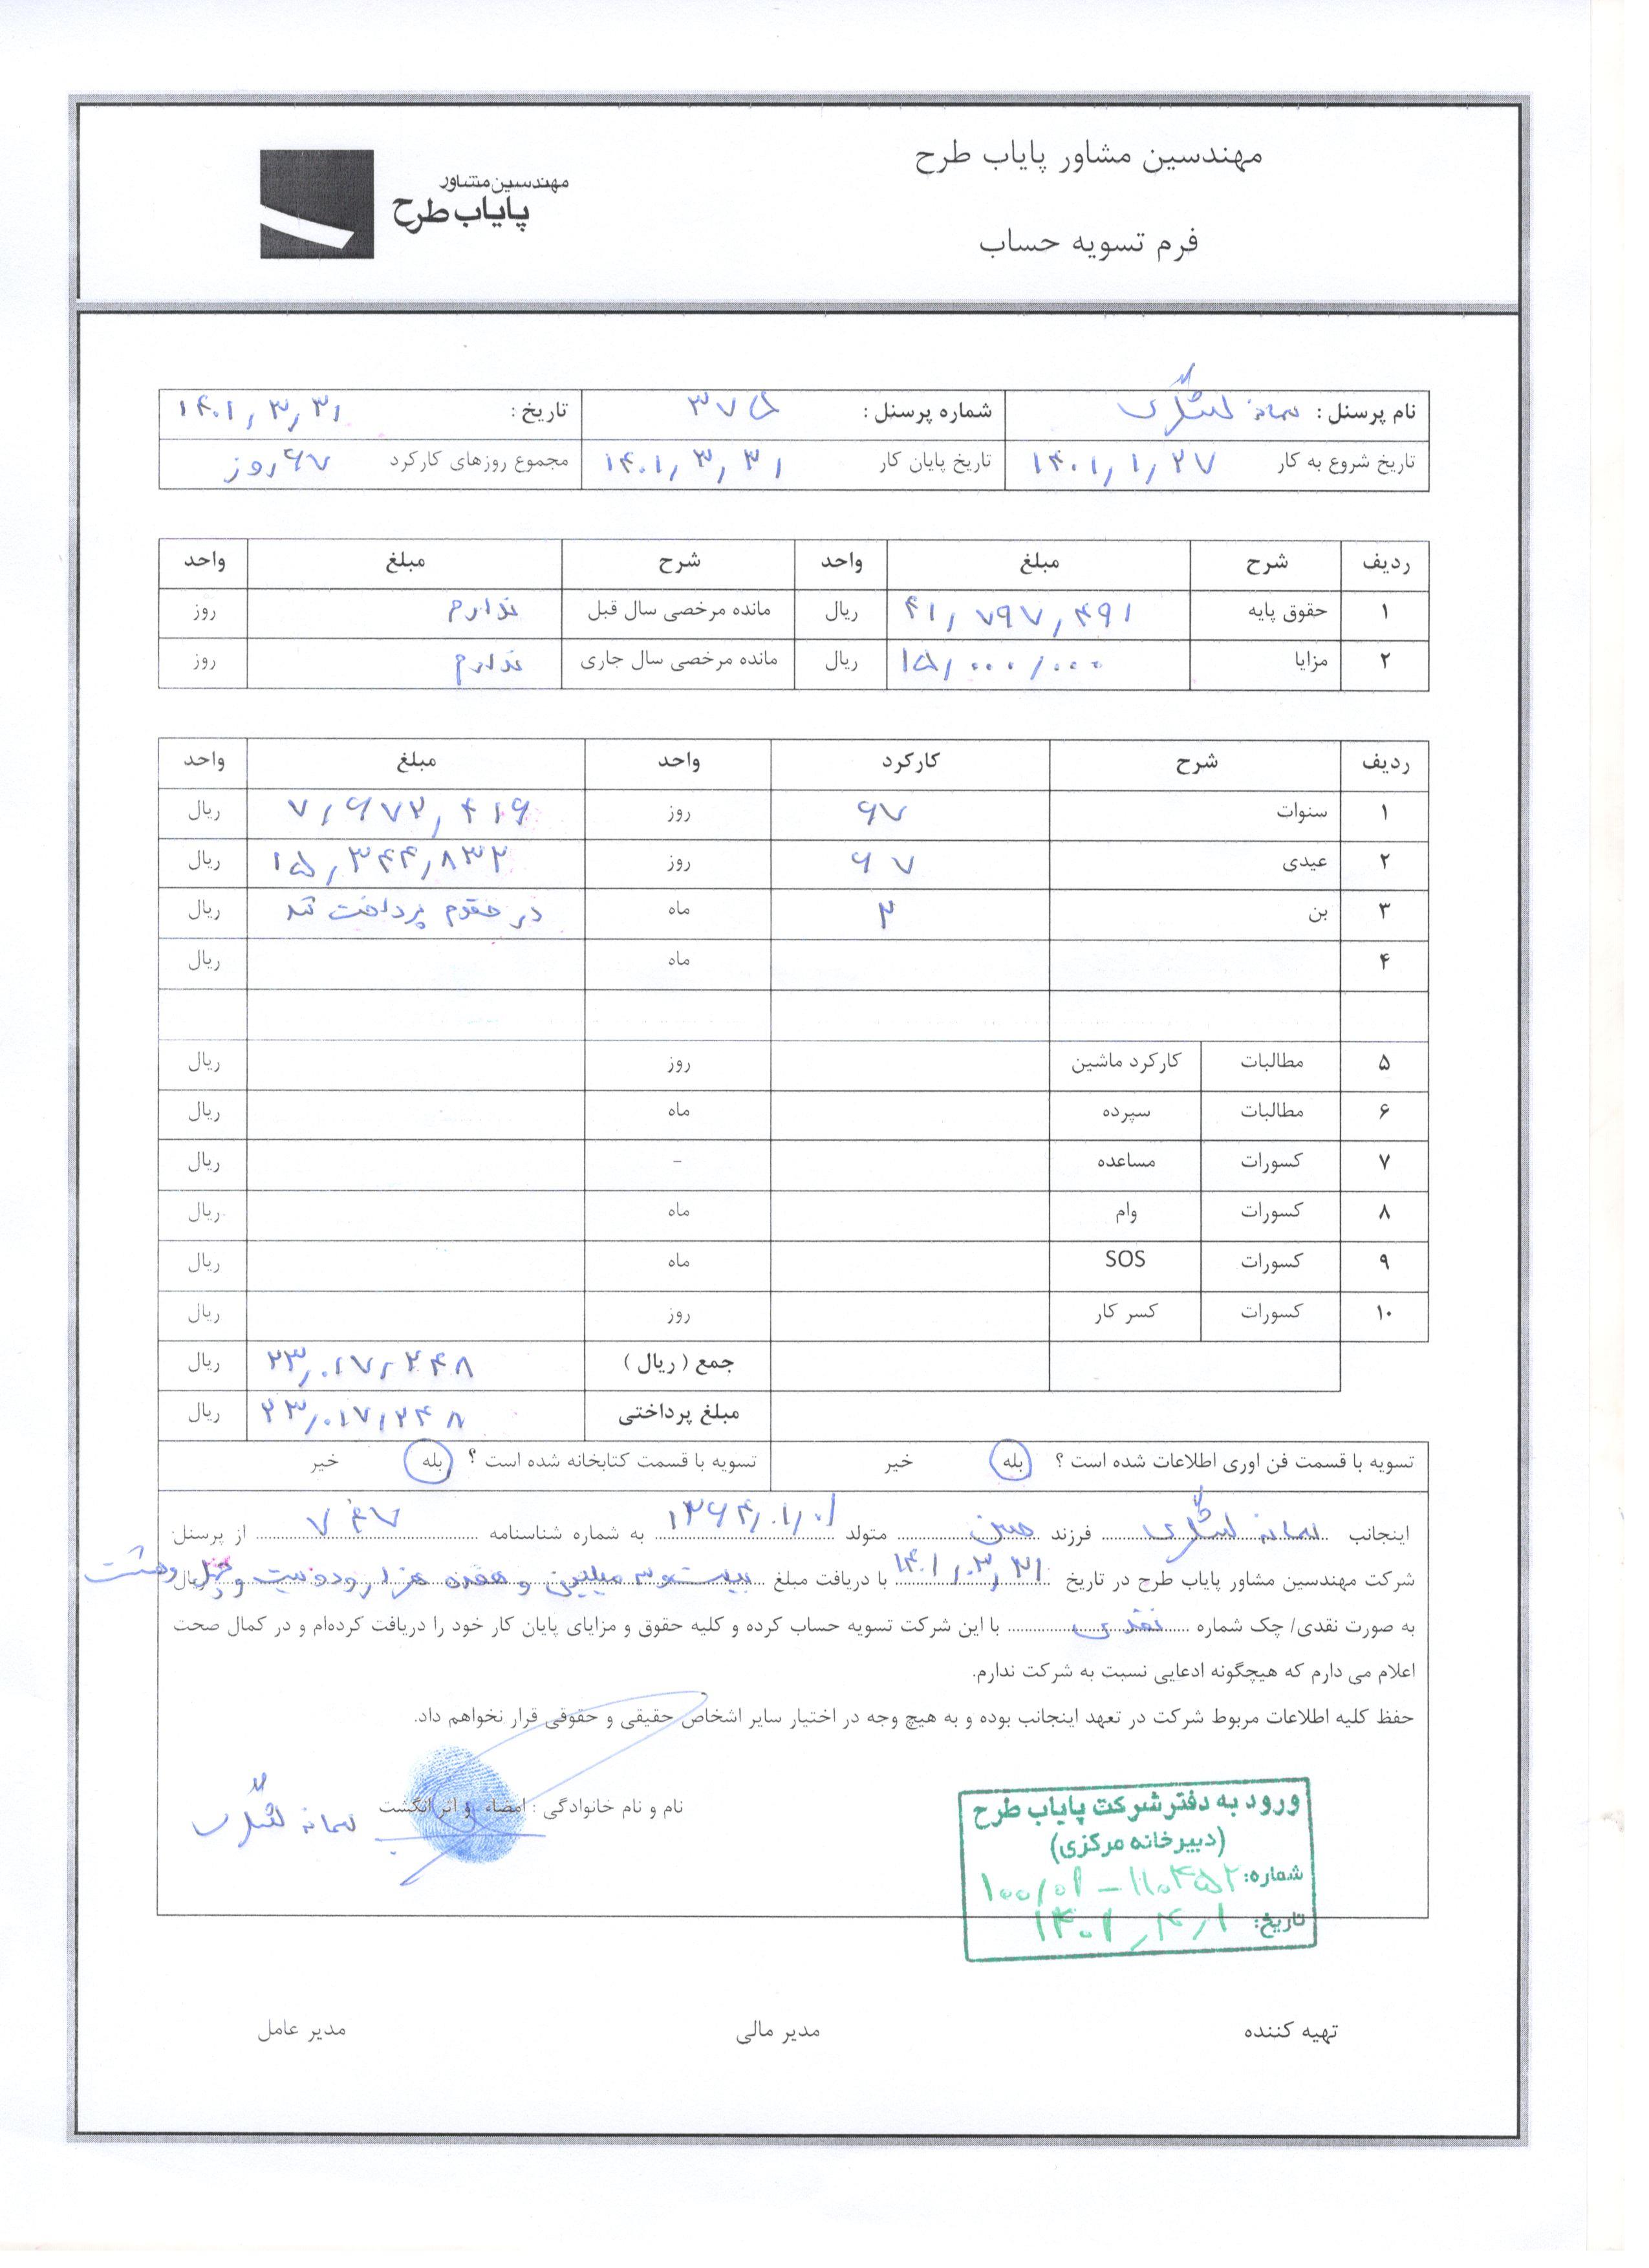 مهندسین مشاور پایاب طرح
مهندسین مشاور
پایاب طرح
فرم تسویه حساب
نام پرسنل : سمانه لشگری شماره پرسنل : تاریخ : ۱۴۰۱,۳,۳۱
تاریخ شروع به کار ۱۴۰۱,۱,۲۷ تاریخ پایان کار ۱۴۰۱,۳,۳۱ مجموع روزهای کارکرد ۶۷ روز
ردیف شرح مبلغ واحد شرح مبلغ واحد
۱ حقوق پایه ۴۱,۷۹۷,۴۹۱ ریال مانده مرخصی سال قبل ندارم روز
۲ مزایا ۱۵,۰۰۰,۰۰۰ ریال مانده مرخصی سال جاری ندارم روز
ردیف شرح کارکرد واحد مبلغ واحد
۱ سنوات ۶۷ روز ۷,۶۷۲,۴۱۶ ریال
۲ عیدی ۶۷ روز ۱۵,۳۴۴,۸۳۲ ریال
۳ بن ۲ ماه در حقوق پرداخت شد ریال
۴ ماه ریال
۵ مطالبات کارکرد ماشین روز ریال
۶ مطالبات سپرده ماه ریال
۷ کسورات مساعده - ریال
۸ کسورات وام ماه ریال
۹ کسورات SOS ماه ریال
۱۰ کسورات کسر کار روز ریال
جمع ( ریال ) ۲۳,۰۱۷,۲۴۸ ریال
مبلغ پرداختی ۲۳,۰۱۷,۲۴۸ ریال
تسویه با قسمت فن اوری اطلاعات شده است ؟ بله خیر تسویه با قسمت کتابخانه شده است ؟ بله خیر
اینجانب سمانه لشگری فرزند متولد ۱۳۶۴,۰۱,۰۱ به شماره شناسنامه ۷۴۷ از پرسنل
شرکت مهندسین مشاور پایاب طرح در تاریخ ۱۴۰۱,۳,۳۱ با دریافت مبلغ بیست و سه میلیون و هفده هزار و دویست و چهل و هشت ریال
به صورت نقدی/ چک شماره نقدی با این شرکت تسویه حساب کرده و کلیه حقوق و مزایای پایان کار خود را دریافت کرده‌ام و در کمال صحت
اعلام می دارم که هیچگونه ادعایی نسبت به شرکت ندارم.
حفظ کلیه اطلاعات مربوط شرکت در تعهد اینجانب بوده و به هیچ وجه در اختیار سایر اشخاص حقیقی و حقوقی قرار نخواهم داد.
نام و نام خانوادگی : امضاء و اثر انگشت سمانه لشگری
ورود به دفتر شرکت پایاب طرح
(دبیرخانه مرکزی)
شماره: ۱۰۰/۰۱ - ۱۱۰۴۵۲
تاریخ: ۱۴۰۱,۴,۱
تهیه کننده مدیر مالی مدیر عامل